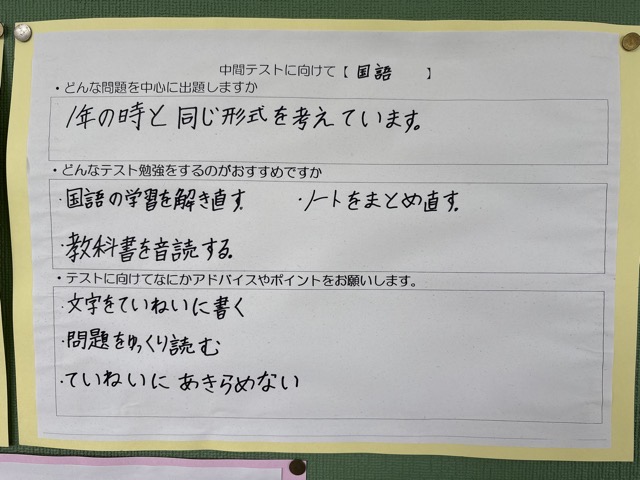 中間テストに向けて【 国語 】
・どんな問題を中心に出題しますか
1年の時と同じ形式を考えています。
・どんなテスト勉強をするのがおすすめですか
・国語の学習を解き直す。 ・ノートをまとめ直す。
教科書を音読する。
・テストに向けてなにかアドバイスやポイントをお願いします。
・文字をていねいに書く
・問題をゆっくり読む
・ていねいに あきらめない